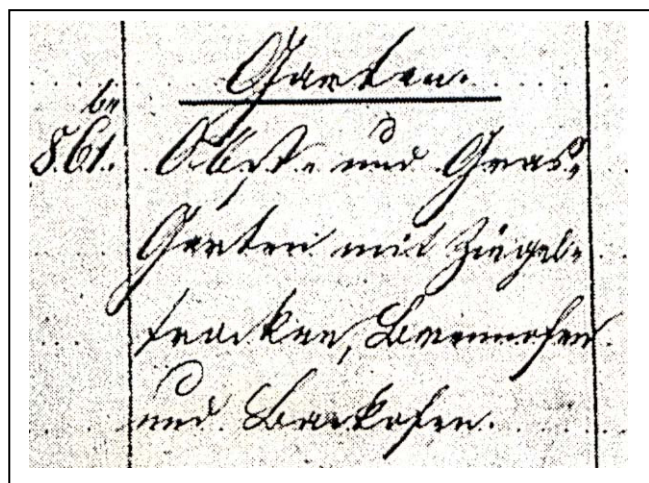 Garten.
bei
861. Obst- und Gras-
Garten mit Ziegel-
trocken, Brennofen
und Backofen.